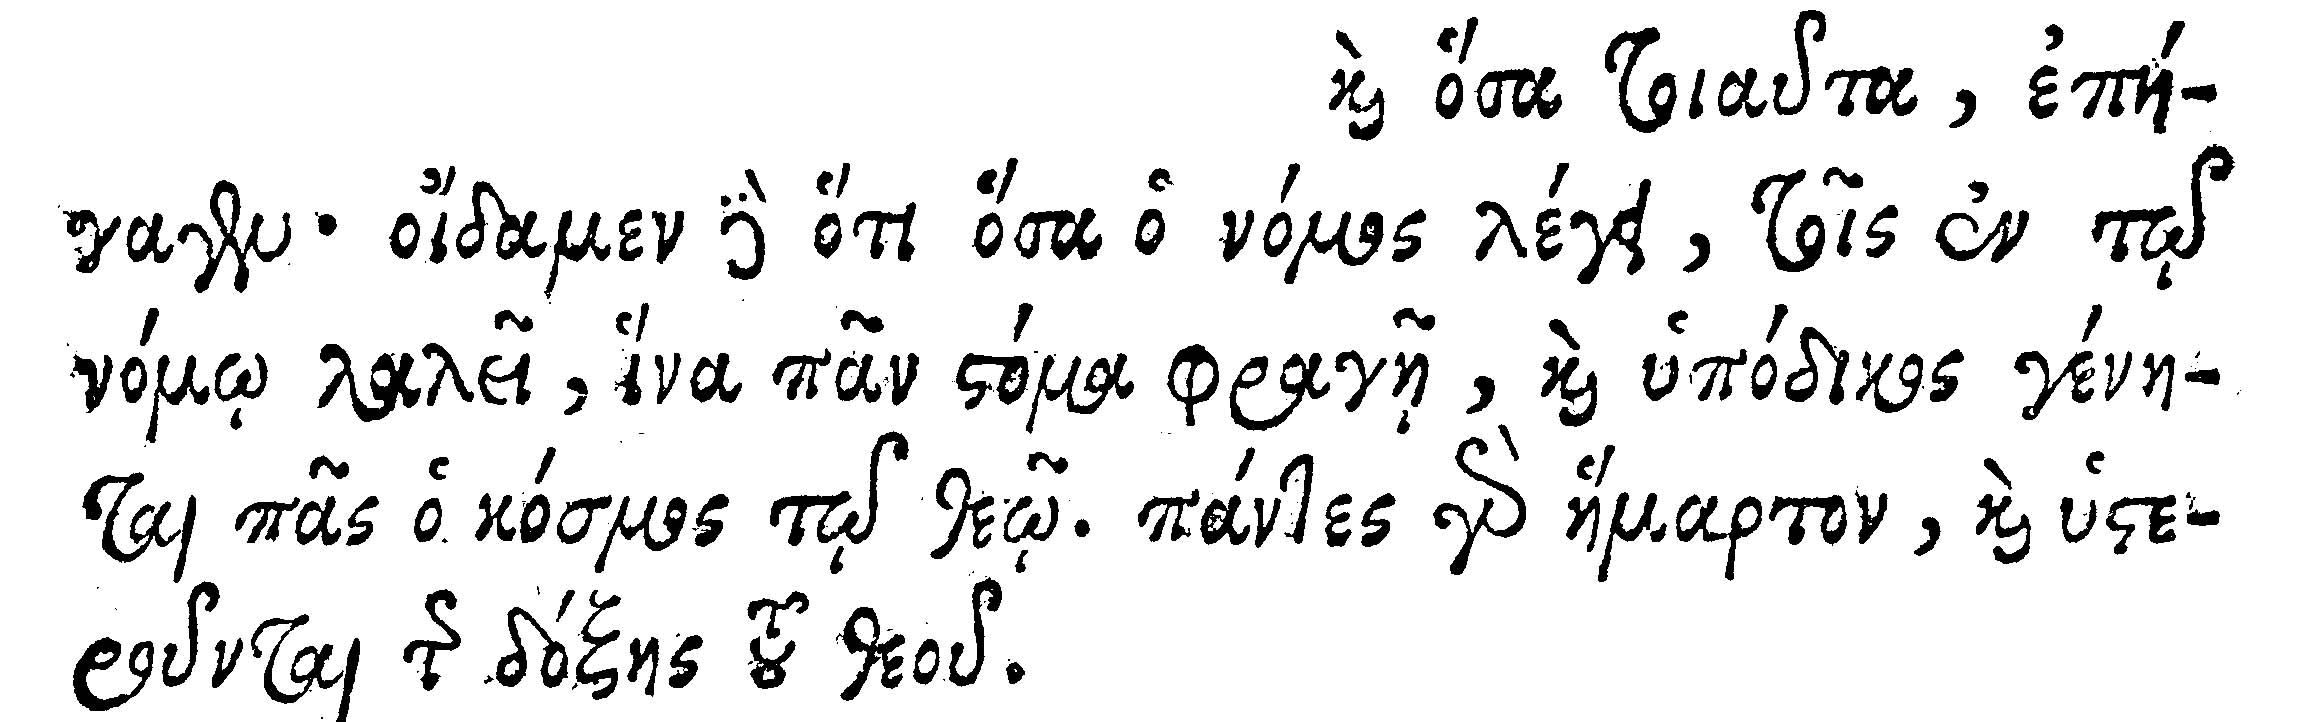 καὶ ὅσα τοιαῦτα, ἐπή-
γαγεν· οἴδαμεν δὲ ὅτι ὅσα ὁ νόμος λέγει, τοῖς ἐν τῷ
νόμῳ λαλεῖ, ἵνα πᾶν στόμα φραγῇ, καὶ ὑπόδικος γένη-
ται πᾶς ὁ κόσμος τῷ θεῷ. πάντες γὰρ ἥμαρτον, καὶ ὑστε-
ροῦνται τῆς δόξης τοῦ θεοῦ.